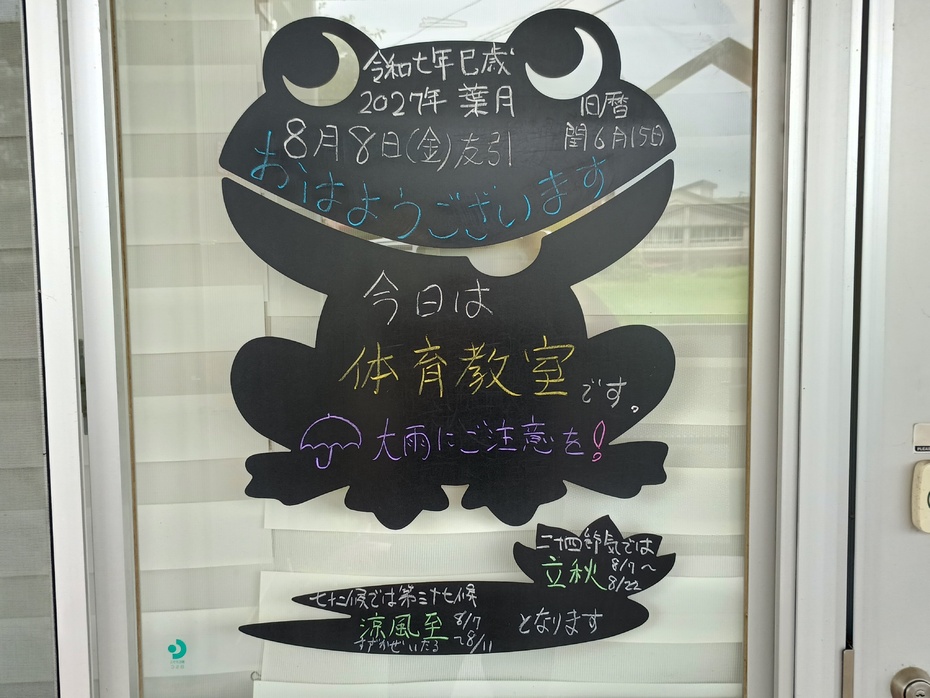 令和七年巳歳
2027年 葉月
8月8日(金)友引
旧暦
閏6月15日
おはようございます
今日は
体育教室です。
大雨にご注意を!
二十四節気では
立秋 8/7〜8/22
七十二候では第三十七候
涼風至 8/7〜8/11
すずかぜいたる
となります